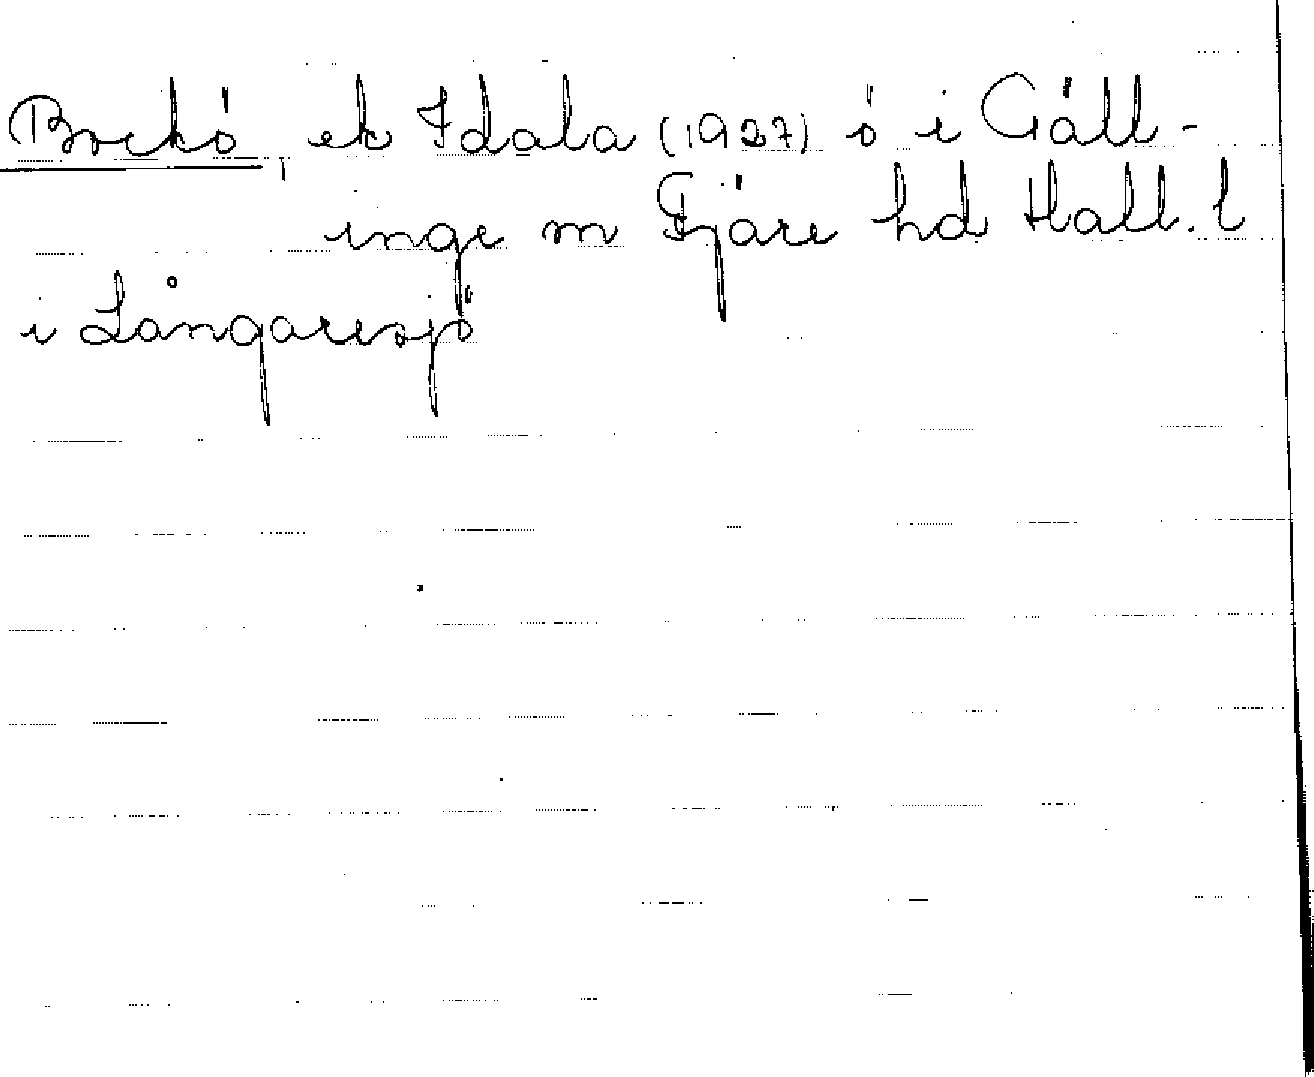 Bockö, ek Idala (1927) ö i Gäll-
inge m Fjäre hd Hall. l
i Långaresjö